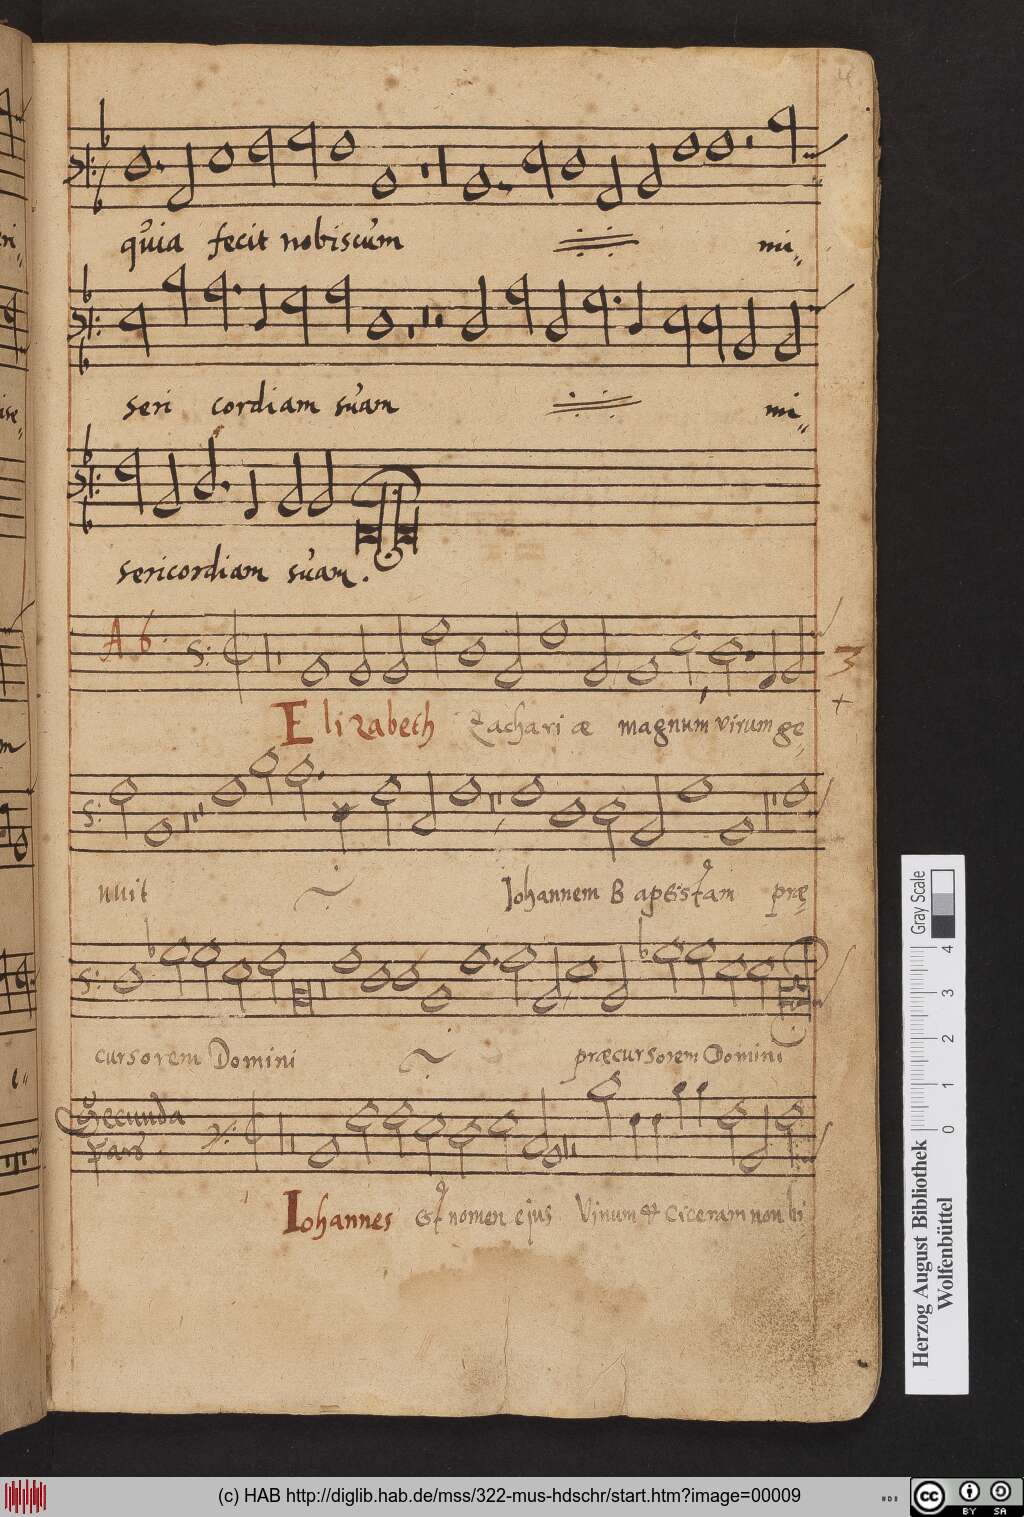 quia fecit nobiscum mi„
seri cordiam suam mi„
sericordiam suam.
A 6.
3
Elizabeth Zachariæ magnum virum ge„
nuit Iohannem Baptistam præ„
cursorem Domini præcursorem Domini
Secunda
Pars.
Iohannes est nomen ejus Vinum et Ciceram non bi
Gray Scale
0 1 2 3 4
Herzog August Bibliothek
Wolfenbüttel
(c) HAB http://diglib.hab.de/mss/322-mus-hdschr/start.htm?image=00009
cc BY SA